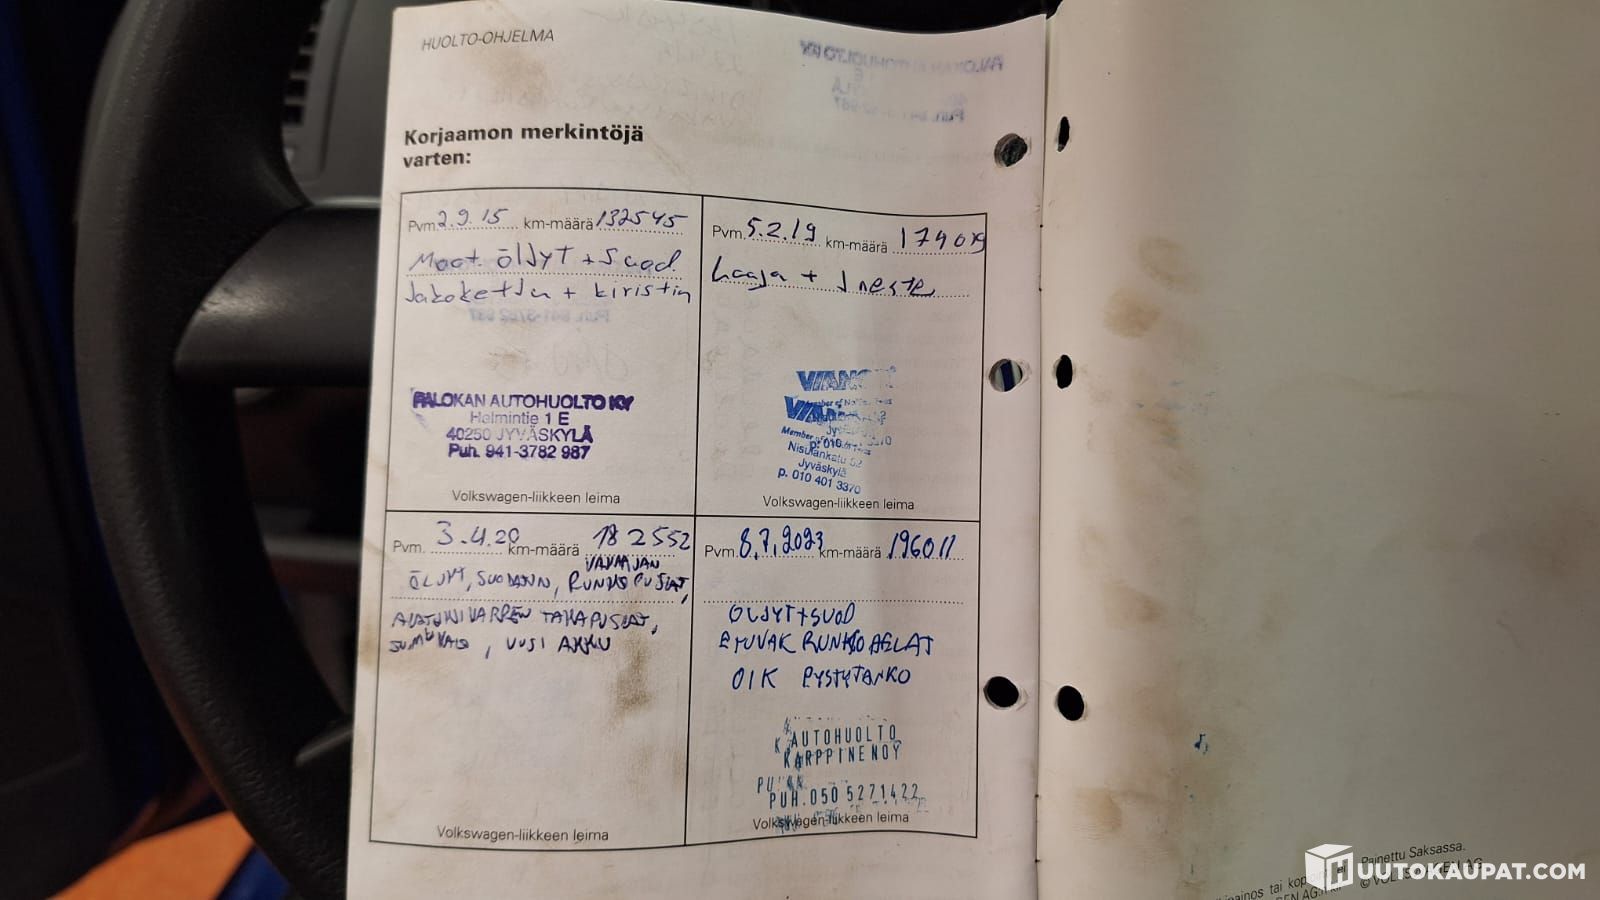 HUOLTO-OHJELMA
Korjaamon merkintöjä
varten:
Pvm. 2.9.15 km-määrä 132545
Moot. öljyt + Suod.
Jakoketju + kiristin
PALOKAN AUTOHUOLTO KY
Helmintie 1 E
40250 JYVÄSKYLÄ
Puh. 941-3782 987
Volkswagen-liikkeen leima
Pvm. 5.2.19 km-määrä 174019
Laaja + Jneste
VIANOR
Nisulankatu 52
Jyväskylä
p. 010 401 3370
Volkswagen-liikkeen leima
Pvm. 3.4.20 km-määrä 182552
VAKAAJAN
ÖLJYT, SUODATIN, RUNKO PUSLAT,
ALATUKIVARREN TAKAPUSLAT,
, UUSI AKKU
Volkswagen-liikkeen leima
Pvm. 8.7.2023 km-määrä 196011
ÖLJYT+SUOD
ETUVAK RUNKO
OIK PYSTYTANKO
AUTOHUOLTO
KARPPINEN OY
PUH. 050 5271422
Volkswagen-liikkeen leima
Painettu Saksassa.
HUUTOKAUPAT.COM